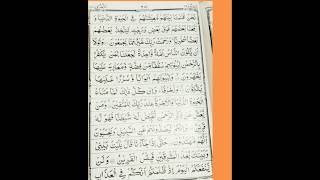 نَحْنُ قَسَمْنَا بَيْنَهُمْ مَّعِيْشَتَهُمْ فِي الْحَيٰوةِ الدُّنْيَا وَ
رَفَعْنَا بَعْضَهُمْ فَوْقَ بَعْضٍ دَرَجٰتٍ لِّيَتَّخِذَ بَعْضُهُمْ
بَعْضًا سُخْرِيًّا وَرَحْمَتُ رَبِّكَ خَيْرٌ مِّمَّا يَجْمَعُوْنَ وَلَوْلَا
اَنْ يَّكُوْنَ النَّاسُ اُمَّةً وَّاحِدَةً لَّجَعَلْنَا لِمَنْ يَّكْفُرُ
بِالرَّحْمٰنِ لِبُيُوْتِهِمْ سُقُفًا مِّنْ فِضَّةٍ وَّمَعَارِجَ عَلَيْهَا
يَظْهَرُوْنَ وَلِبُيُوْتِهِمْ اَبْوَابًا وَّسُرُرًا عَلَيْهَا
يَتَّكِـُٔوْنَ وَزُخْرُفًا وَاِنْ كُلُّ ذٰلِكَ لَمَّا مَتَاعُ
الْحَيٰوةِ الدُّنْيَا وَالْاٰخِرَةُ عِنْدَ رَبِّكَ لِلْمُتَّقِيْنَ وَمَنْ
يَّعْشُ عَنْ ذِكْرِ الرَّحْمٰنِ نُقَيِّضْ لَهٗ شَيْطٰنًا فَهُوَ لَهٗ
قَرِيْنٌ وَاِنَّهُمْ لَيَصُدُّوْنَهُمْ عَنِ السَّبِيْلِ وَيَحْسَبُوْنَ
اَنَّهُمْ مُّهْتَدُوْنَ حَتّٰٓى اِذَا جَآءَنَا قَالَ يٰلَيْتَ بَيْنِيْ
وَبَيْنَكَ بُعْدَ الْمَشْرِقَيْنِ فَبِئْسَ الْقَرِيْنُ وَلَنْ
يَّنْفَعَكُمُ الْيَوْمَ اِذْ ظَّلَمْتُمْ اَنَّكُمْ فِي الْعَذَابِ